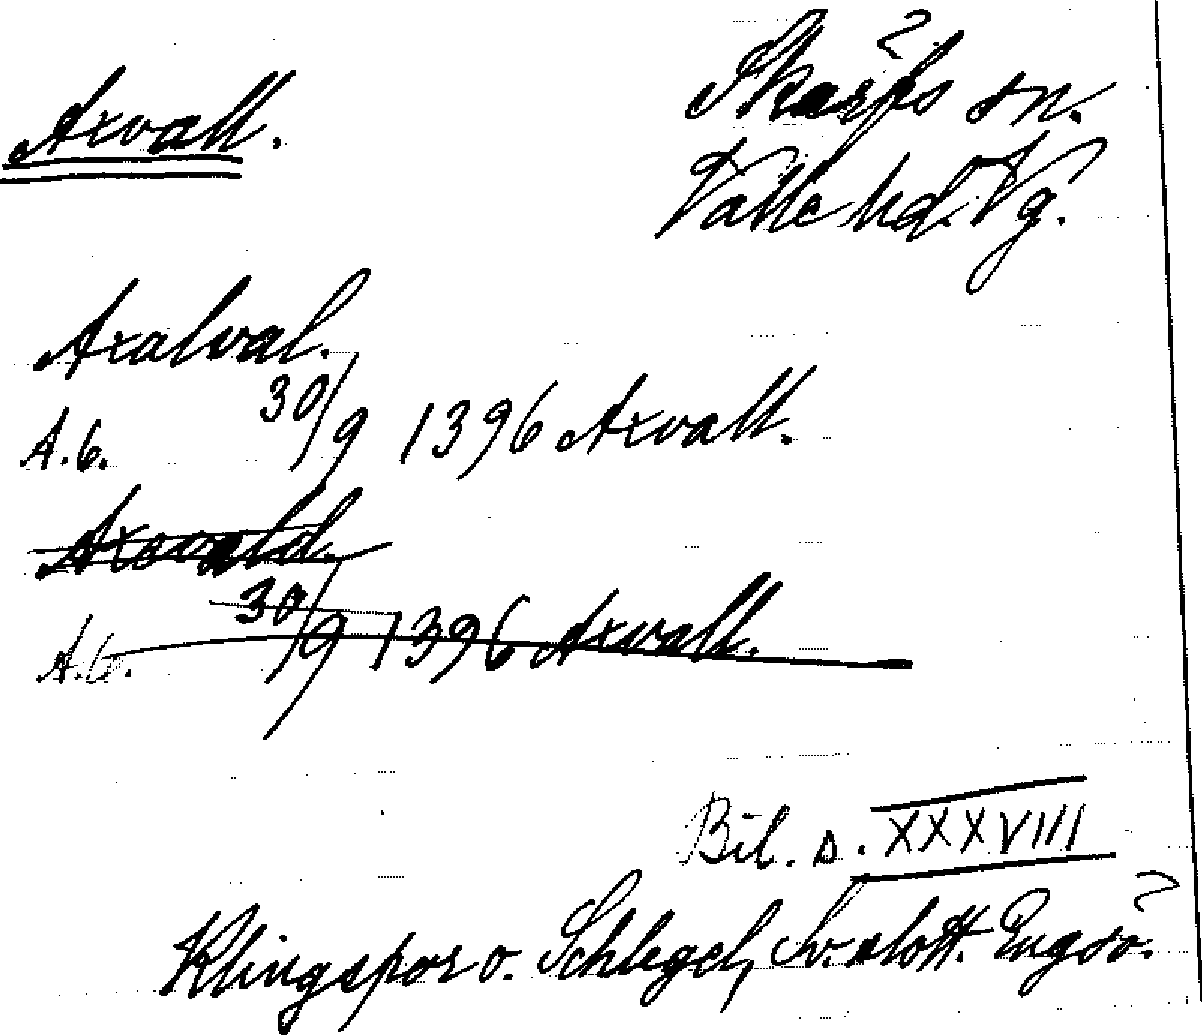 Axvall.
Skärfs sn.
Valle hd. Vg.
Axalval.
A.b. 30/9 1396 Axvall.
Axevald.
A.b. 30/9 1396 Axvall.
Bil. s. XXXVIII
Klingspor o. Schlegel, Sv. slott. Engsö.